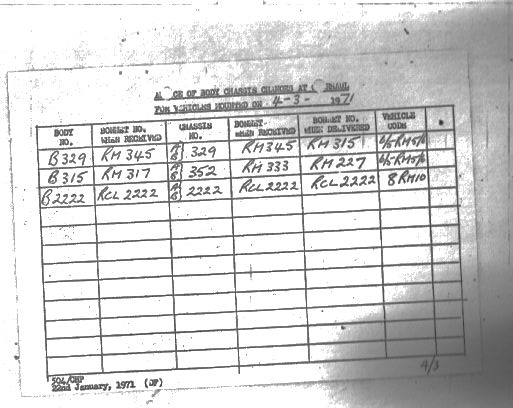 OF BODY CHASSIS CHANGES AT
FOR VEHICLES MOUNTED ON 4-3- 1971
BODY NO. BONNET NO. WHEN RECEIVED CHASSIS NO. BONNET WHEN RECEIVED BONNET NO. WHEN DELIVERED VEHICLE CODE
B329 RM 345 A/B} 329 RM345 RM 315 6/5RM5/6
B315 RM 317 A/B} 352 RM 333 RM 227 6/5RM5/6
B2222 RCL 2222 A/B} 2222 RCL2222 RCL2222 8RM10
504/CHP
22nd January, 1971 (DF)
4/3